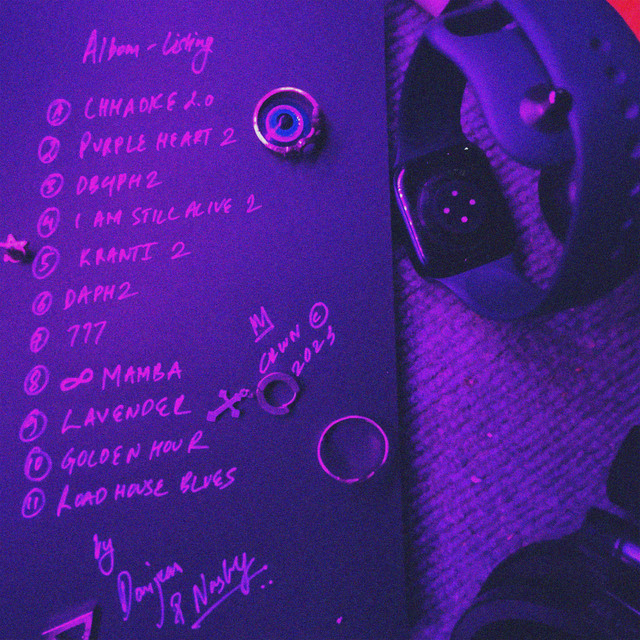 Album - Listing
1 CHHAOKE 2.0
2 PURPLE HEART 2
3 DBYPH2
4 I AM STILL ALIVE 2
5 KRANTI 2
6 DAPH2
7 777
8 ∞ MAMBA
9 LAVENDER
10 GOLDEN HOUR
11 ROAD HOUSE BLUES
2023
by
&